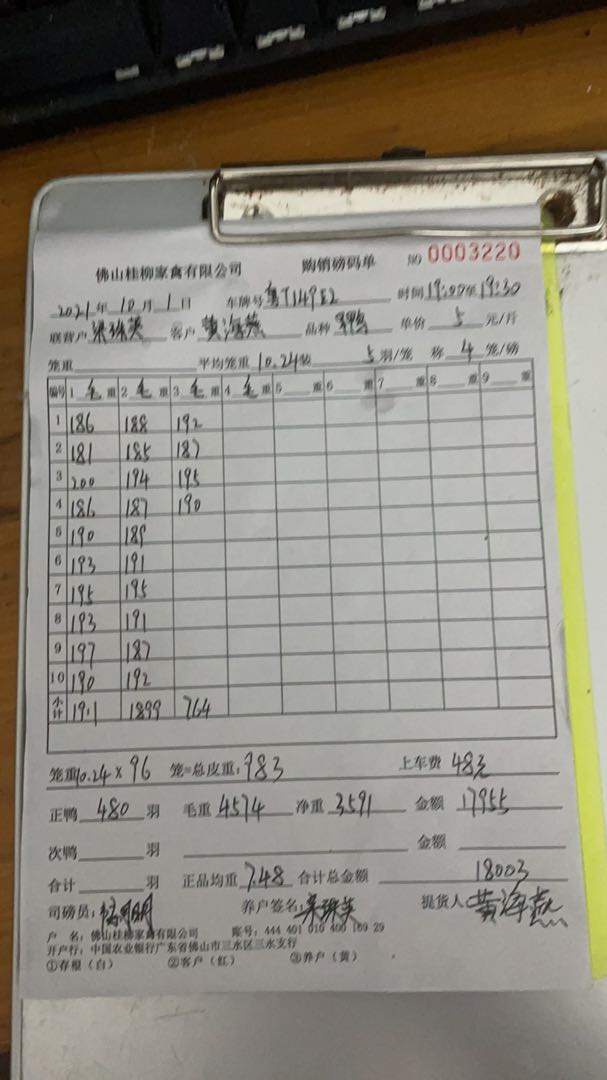 佛山桂柳家禽有限公司 购销磅码单 NO 0003220
2021年10月1日 车牌号 粤T149E2 时间 19:00至19:30
联营户 梁珠英 客户 黄海燕 品种 单价 5 元/斤
笼重 平均笼重 10.24 装 5 羽/笼 称 4 笼/磅
编号 1 毛 重 2 毛 重 3 毛 重 4 毛 重 5 重 6 重 7 重 8 重 9 重
1 186 188 192
2 181 185 187
3 200 194 195
4 186 187 190
5 190 189
6 193 191
7 195 195
8 193 191
9 197 187
10 190 192
小计 1911 1899 764
笼重 10.24 × 96 笼=总皮重: 983 上车费 48元
正鸭 480 羽 毛重 4574 净重 3591 金额 17955
次鸭 羽 金额
合计 羽 正品均重 7.48 合计总金额 18003
司磅员: 养户签名: 梁珠英 提货人 黄海燕
户 名: 佛山桂柳家禽有限公司 账号: 444 401 010 400 169 29
开户行: 中国农业银行广东省佛山市三水区三水支行
①存根(白) ②客户(红) ③养户(黄)